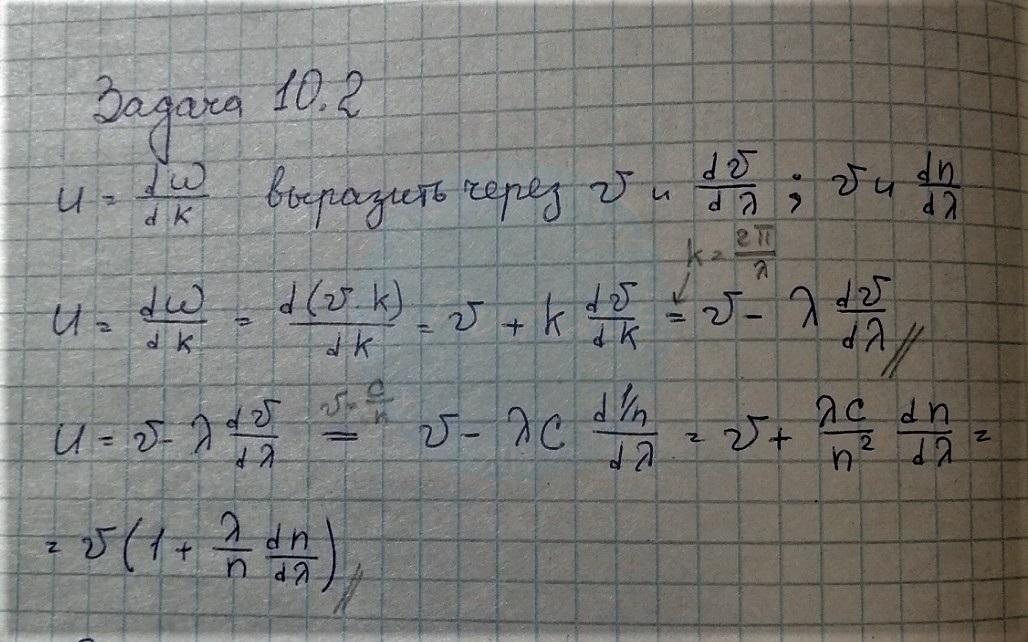 Задача 10.2
u = dω/dk выразить через v и dv/dλ ; v и dn/dλ
k = 2π/λ
u = dω/dk = d(v·k)/dk = v + k dv/dk = v - λ dv/dλ //
u = v - λ dv/dλ = (v = c/n) v - λc d 1/n / dλ = v + λc/n² dn/dλ =
= v(1 + λ/n dn/dλ) //